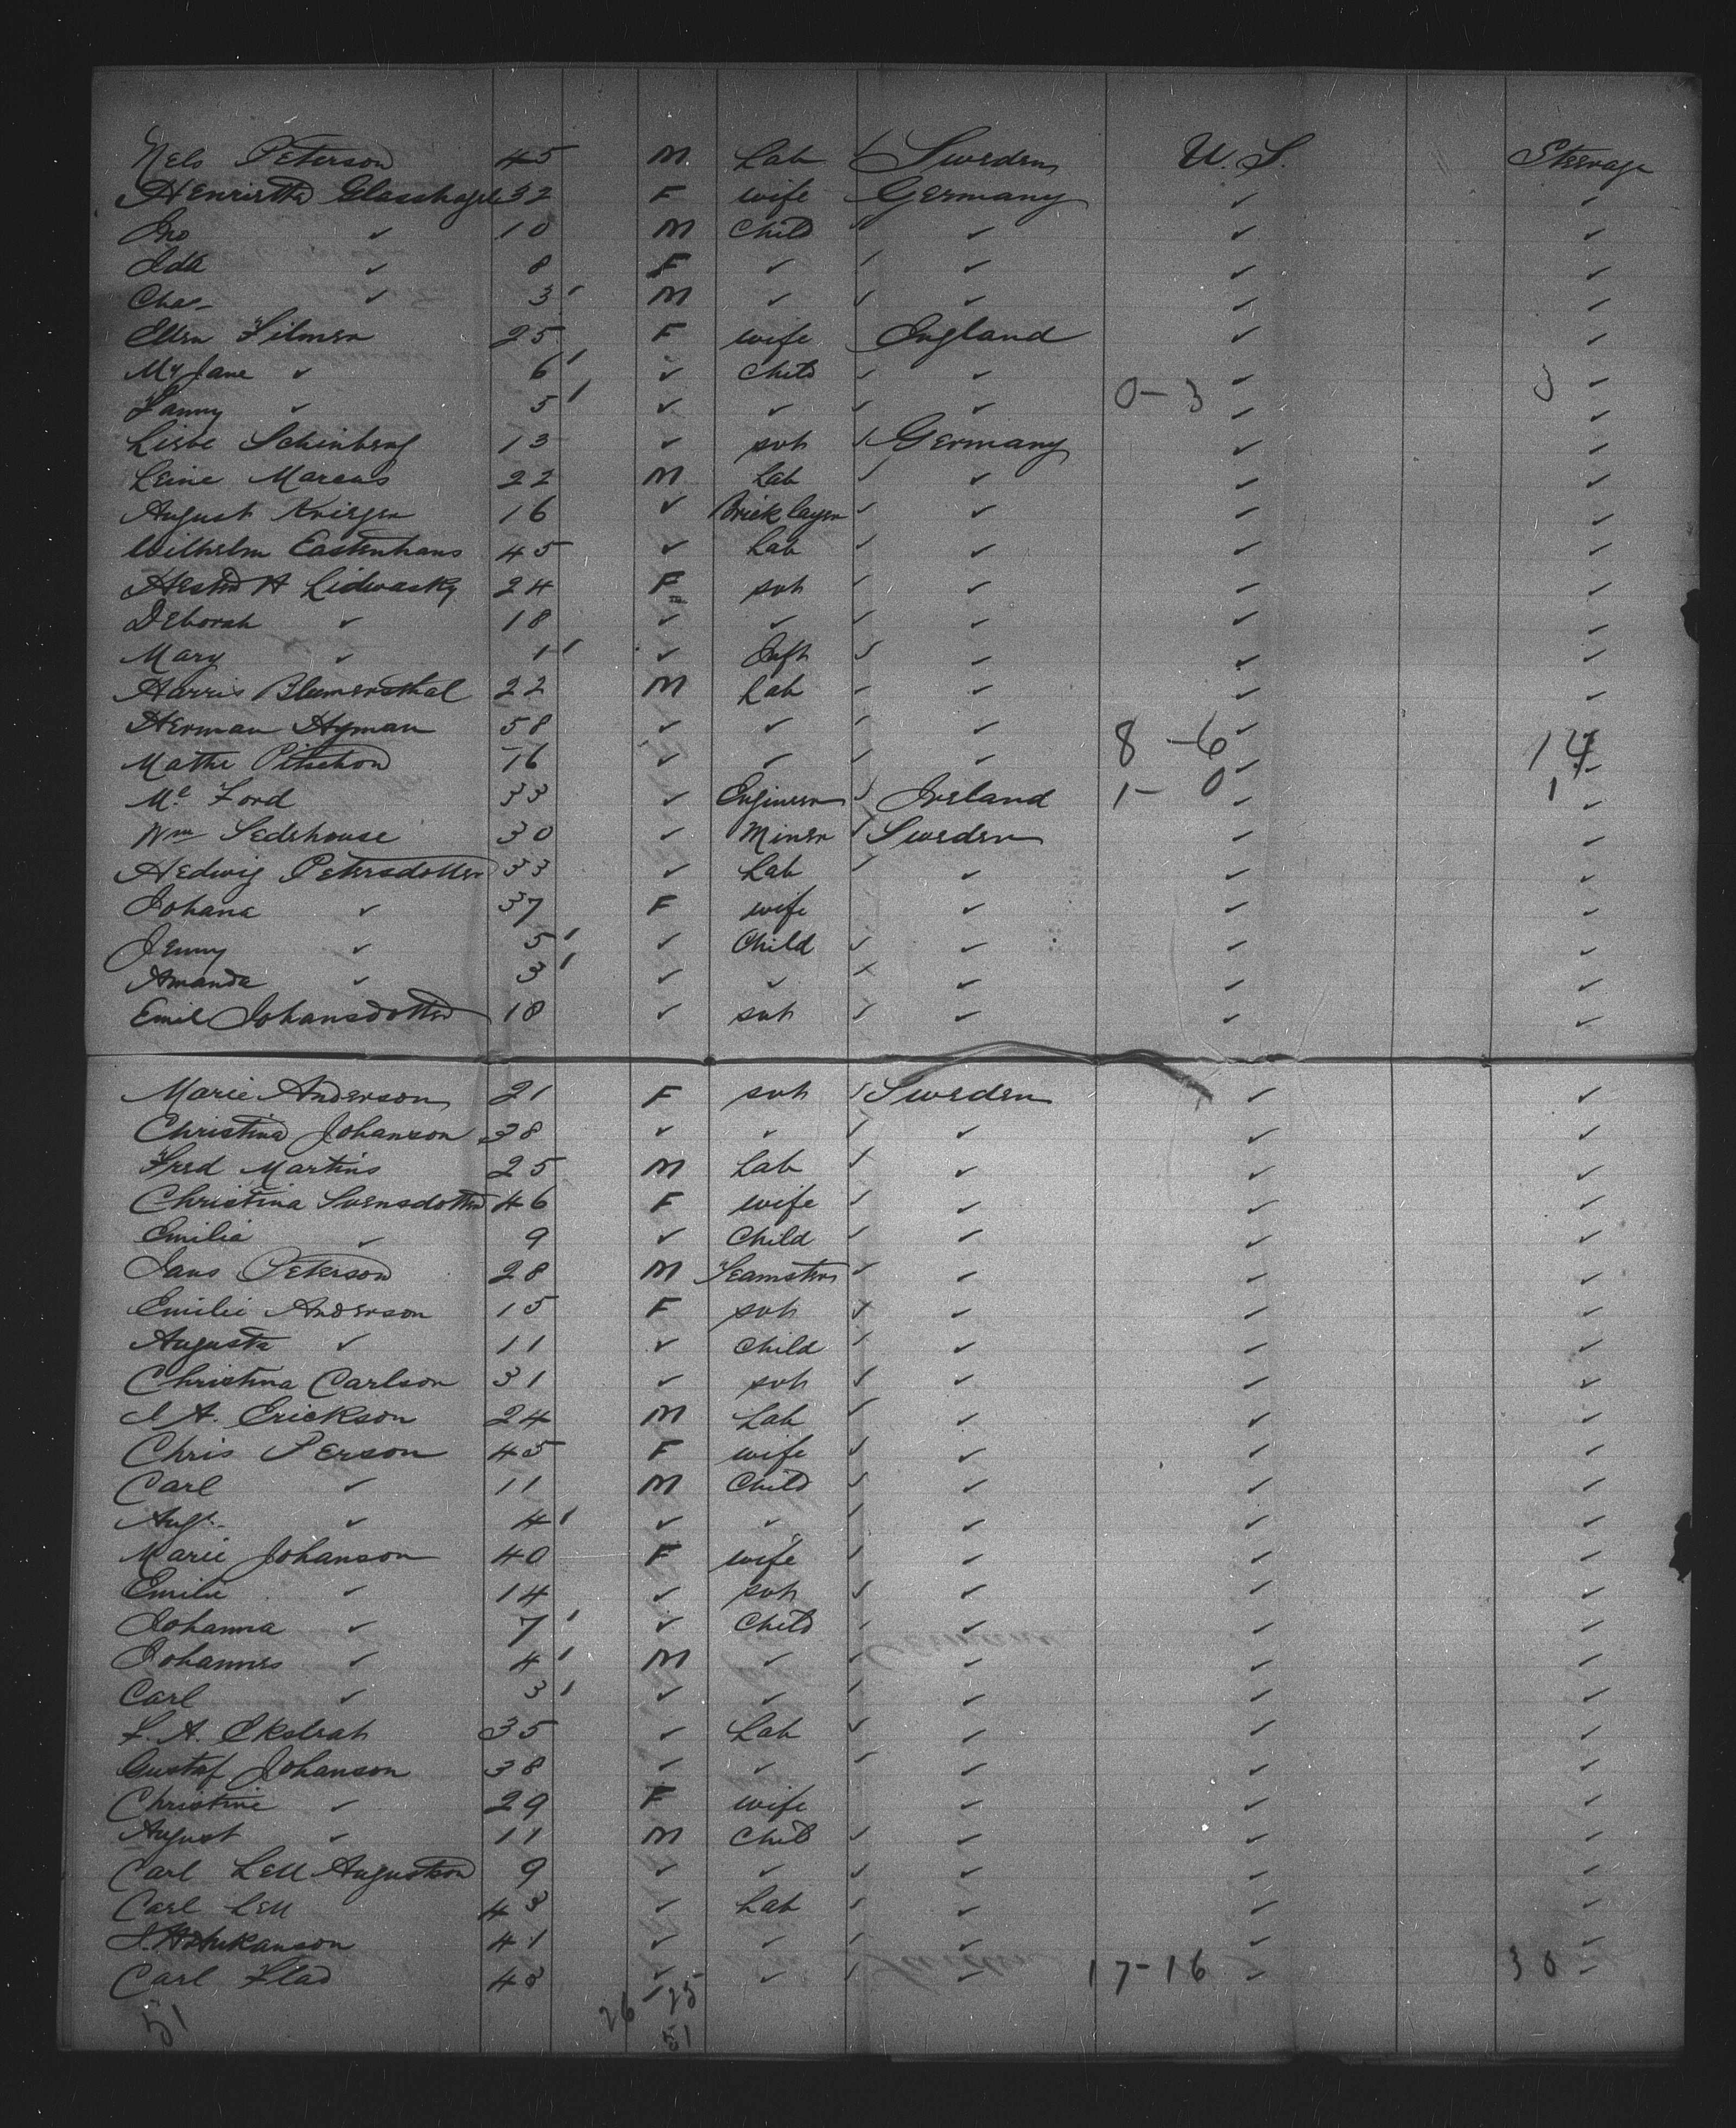 Nels Peterson 45 M Lab / Sweden U.S. Steerage
Henrietta Glasshagele 32 F wife Germany ✓ ✓
Jno ✓ 10 M Child " ✓ ✓ ✓
Ida ✓ 8 F ✓ / ✓ ✓ ✓
Chas ✓ 3' M ✓ ✓ ✓ ✓ ✓
Ellen Filmer 25 F wife England ✓ ✓
My Jane ✓ 6' ✓ Child ✓ ✓ ✓ 3 ✓
Fanny ✓ 5' ✓ ✓ ✓ ✓ 0-3 ✓ ✓
Lisbe Schinberg 13 ✓ svt / Germany ✓ ✓
Leine Marcus 22 M Lab ✓ ✓ ✓ ✓
August Krieger 16 ✓ Bricklayer ✓ ✓ ✓ ✓
Wilhelm Eastenhans 45 ✓ Lab ✓ ✓ ✓ ✓
A Lidwasky 24 F svt ✓ ✓ ✓ ✓
Deborah ✓ 18 ✓ ✓ ✓ ✓ ✓ ✓
Mary ✓ 1' ✓ Inft ✓ ✓ ✓ ✓
Harris Blumensthal 22 M Lab ✓ ✓ ✓ ✓
Herman Hyman 58 ✓ ✓ ✓ ✓ 8-6 ✓ 14
Mathe Pitschon 16 ✓ ✓ ✓ ✓ ✓ ✓
Mc Ford 33 ✓ Engineer ✓ Ireland 1-0 ✓ 1 ✓
Wm Sedehouse 30 ✓ Miner ✓ Sweden ✓ ✓
Hedwig Petersdotter 33 ✓ Lab ✓ ✓ ✓ ✓
Johana ✓ 37 F wife ✓ ✓ ✓
Jenny ✓ 5' ✓ Child ✓ ✓ ✓ ✓
Amanda ✓ 3' ✓ ✓ x ✓ ✓ ✓
Emil Johansdotter 18 ✓ svt ✓ ✓ ✓ ✓
Marie Anderson 21 F svt / Sweden ✓ ✓
Christina Johanson 38 ✓ ✓ ✓ ✓ ✓ ✓
Fred Martins 25 M Lab ✓ ✓ ✓ ✓
Christina Svensdotter 46 F wife ✓ ✓ ✓ ✓
Emilia ✓ 9 ✓ Child ✓ ✓ ✓ ✓
Jans Peterson 28 M Teamster ✓ ✓ ✓ ✓
Emilie Anderson 15 F svt x ✓ ✓ ✓
Augusta ✓ 11 ✓ Child / ✓ ✓ ✓
Christina Carlson 31 ✓ svt ✓ ✓ ✓ ✓
J A. Erickson 24 M Lab ✓ ✓ ✓ ✓
Chris Person 45 F wife ✓ ✓ ✓ ✓
Carl ✓ 11 M Child ✓ ✓ ✓ ✓
Augt. ✓ 4' ✓ ✓ / ✓ ✓ ✓
Marie Johanson 40 F wife / ✓ ✓ ✓
Emilie ✓ 14 ✓ svt ✓ ✓ ✓ ✓
Johanna ✓ 7' ✓ Child / ✓ ✓ ✓
Johannes ✓ 4' M ✓ ✓ ✓ ✓ ✓
Carl ✓ 3' ✓ ✓ / ✓ ✓ ✓
F. A. 35 ✓ Lab ✓ ✓ ✓ ✓
Gustaf Johanson 38 ✓ ✓ ✓ ✓ ✓ ✓
Christine ✓ 29 F wife ✓ ✓ ✓
August ✓ 11 M Child ✓ ✓ ✓ ✓
Carl Lell Augustson 9 ✓ ✓ ✓ ✓ ✓ ✓
Carl Lell 43 ✓ Lab ✓ ✓ ✓ ✓
41 ✓ ✓ / ✓ ✓ ✓
Carl Flad 48 ✓ ✓ / ✓ 17-16 ✓ 30 ✓
51 26 - 25
51